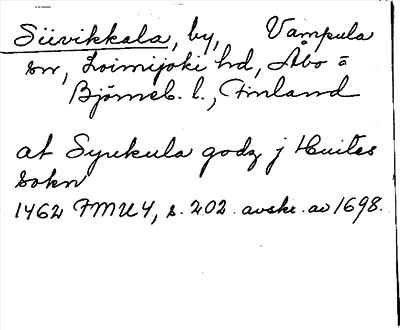 Siivikkala, by, Vampula
sn, Loimijoki hd, Åbo o
Björneb. l., Finland
at Syukula godz j Huitis
sokn
1462 FMU 4, s. 202. avskr. av 1698.